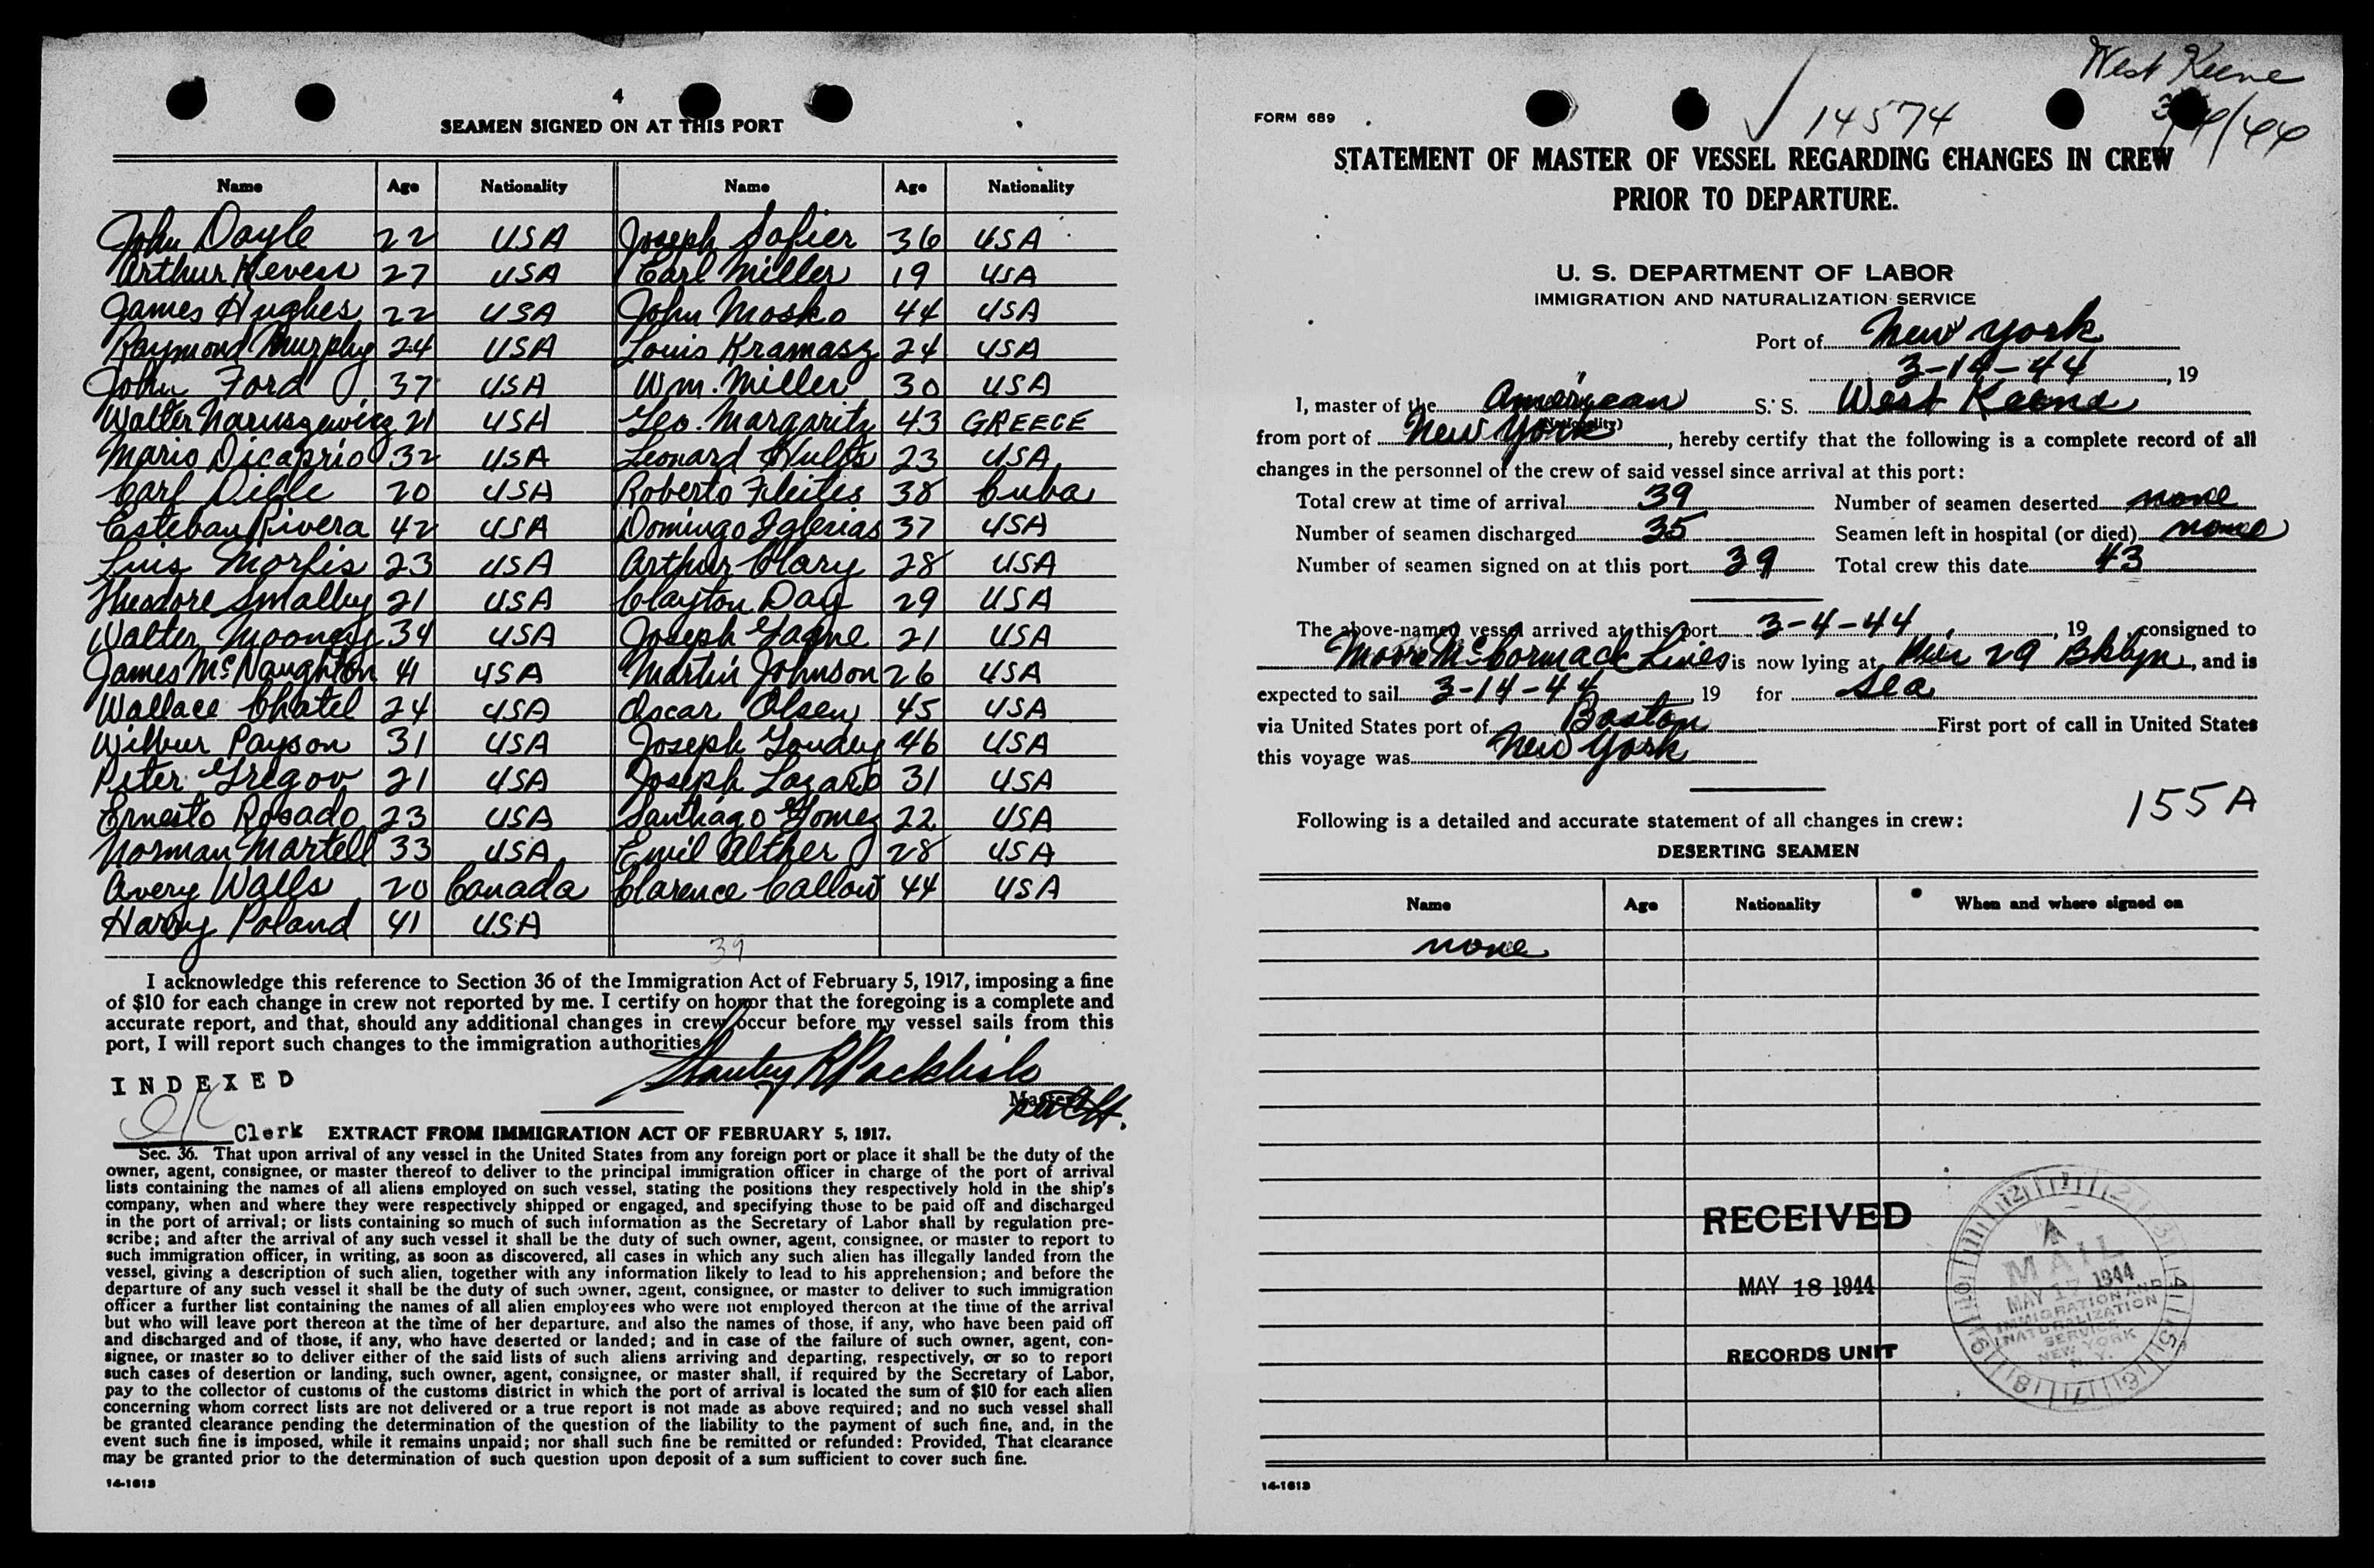 4
SEAMEN SIGNED ON AT THIS PORT
Name Age Nationality Name Age Nationality
John Doyle 22 USA Joseph Sofier 36 USA
Arthur 27 USA Carl Miller 19 USA
James Hughes 22 USA John Mosko 44 USA
Raymond Murphy 24 USA Louis Kramasz 24 USA
John Ford 37 USA Wm. Miller 30 USA
Walter Naruszewicz 21 USA Geo. Margaritz 43 GREECE
Mario Dicaprio 32 USA Leonard 23 USA
Carl Dible 20 USA Roberto Fleites 38 Cuba
Esteban Rivera 42 USA Domingo Iglesias 37 USA
Luis Morfis 23 USA Arthur Clary 28 USA
Theodore Smalley 21 USA Clayton Day 29 USA
Walter Mooney 34 USA Joseph Gagne 21 USA
James McNaughton 41 USA Martin Johnson 26 USA
Wallace Chatel 24 USA Oscar Olsen 45 USA
Wilbur Payson 31 USA Joseph Goudey 46 USA
Peter Gregov 21 USA Joseph Lazaro 31 USA
Ernesto Rosado 23 USA Santiago Gomez 22 USA
Norman Martell 33 USA Emil Alther 28 USA
Avery Walls 20 Canada Clarence Callow 44 USA
Harry Poland 41 USA
39
I acknowledge this reference to Section 36 of the Immigration Act of February 5, 1917, imposing a fine
of $10 for each change in crew not reported by me. I certify on honor that the foregoing is a complete and
accurate report, and that, should any additional changes in crew occur before my vessel sails from this
port, I will report such changes to the immigration authorities.
Stanley R
Master
INDEXED
Clerk EXTRACT FROM IMMIGRATION ACT OF FEBRUARY 5, 1917.
Sec. 36. That upon arrival of any vessel in the United States from any foreign port or place it shall be the duty of the
owner, agent, consignee, or master thereof to deliver to the principal immigration officer in charge of the port of arrival
lists containing the names of all aliens employed on such vessel, stating the positions they respectively hold in the ship's
company, when and where they were respectively shipped or engaged, and specifying those to be paid off and discharged
in the port of arrival; or lists containing so much of such information as the Secretary of Labor shall by regulation pre-
scribe; and after the arrival of any such vessel it shall be the duty of such owner, agent, consignee, or master to report to
such immigration officer, in writing, as soon as discovered, all cases in which any such alien has illegally landed from the
vessel, giving a description of such alien, together with any information likely to lead to his apprehension; and before the
departure of any such vessel it shall be the duty of such owner, agent, consignee, or master to deliver to such immigration
officer a further list containing the names of all alien employees who were not employed thereon at the time of the arrival
but who will leave port thereon at the time of her departure, and also the names of those, if any, who have been paid off
and discharged and of those, if any, who have deserted or landed; and in case of the failure of such owner, agent, con-
signee, or master so to deliver either of the said lists of such aliens arriving and departing, respectively, or so to report
such cases of desertion or landing, such owner, agent, consignee, or master shall, if required by the Secretary of Labor,
pay to the collector of customs of the customs district in which the port of arrival is located the sum of $10 for each alien
concerning whom correct lists are not delivered or a true report is not made as above required; and no such vessel shall
be granted clearance pending the determination of the question of the liability to the payment of such fine, and, in the
event such fine is imposed, while it remains unpaid; nor shall such fine be remitted or refunded: Provided, That clearance
may be granted prior to the determination of such question upon deposit of a sum sufficient to cover such fine.
14-1613
West Keene
3/4/44
FORM 689
14574
STATEMENT OF MASTER OF VESSEL REGARDING CHANGES IN CREW
PRIOR TO DEPARTURE.
U. S. DEPARTMENT OF LABOR
IMMIGRATION AND NATURALIZATION SERVICE
Port of New York
3-14-44, 19
I, master of the American S. S. West Keene
(Nationality)
from port of New York, hereby certify that the following is a complete record of all
changes in the personnel of the crew of said vessel since arrival at this port:
Total crew at time of arrival 39 Number of seamen deserted none
Number of seamen discharged 35 Seamen left in hospital (or died) none
Number of seamen signed on at this port 39 Total crew this date 43
The above-named vessel arrived at this port 3-4-44, 19 , consigned to
Moore McCormack Lines is now lying at Pier 29 Bklyn, and is
expected to sail 3-14-44, 19 for Sea
via United States port of Boston First port of call in United States
this voyage was New York
155A
Following is a detailed and accurate statement of all changes in crew:
DESERTING SEAMEN
Name Age Nationality When and where signed on
none
RECEIVED
MAY 18 1944
RECORDS UNIT
MAIL
MAY 17 1944
IMMIGRATION AND
NATURALIZATION
SERVICE
NEW YORK
N. Y.
14-1613